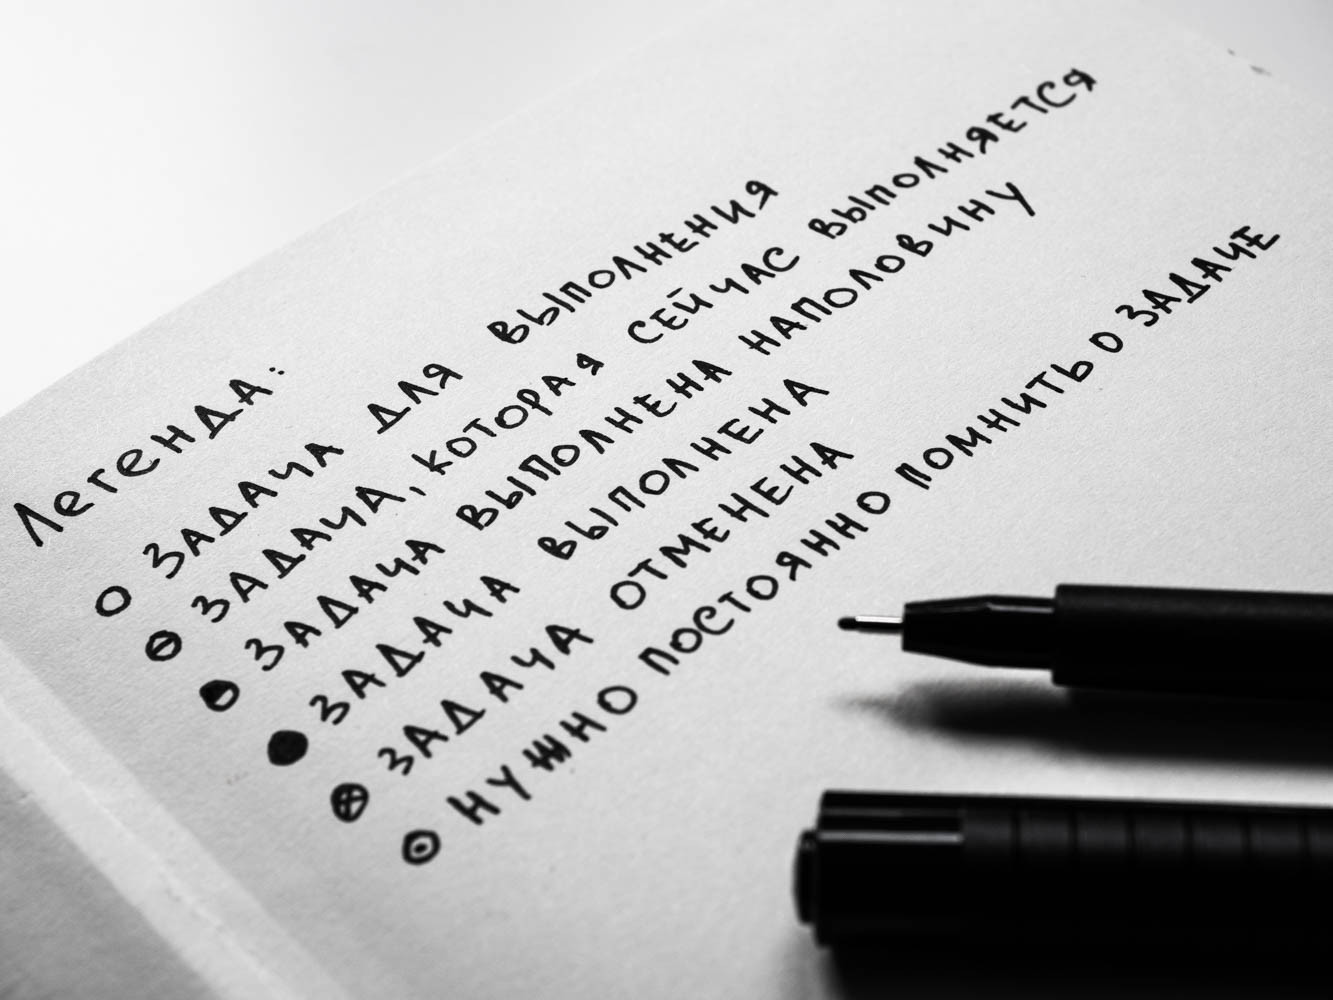 Легенда:
○ ЗАДАЧА ДЛЯ ВЫПОЛНЕНИЯ
⊖ ЗАДАЧА, КОТОРАЯ СЕЙЧАС ВЫПОЛНЯЕТСЯ
◒ ЗАДАЧА ВЫПОЛНЕНА НАПОЛОВИНУ
● ЗАДАЧА ВЫПОЛНЕНА
⊗ ЗАДАЧА ОТМЕНЕНА
⊙ НУЖНО ПОСТОЯННО ПОМНИТЬ О ЗАДАЧЕ